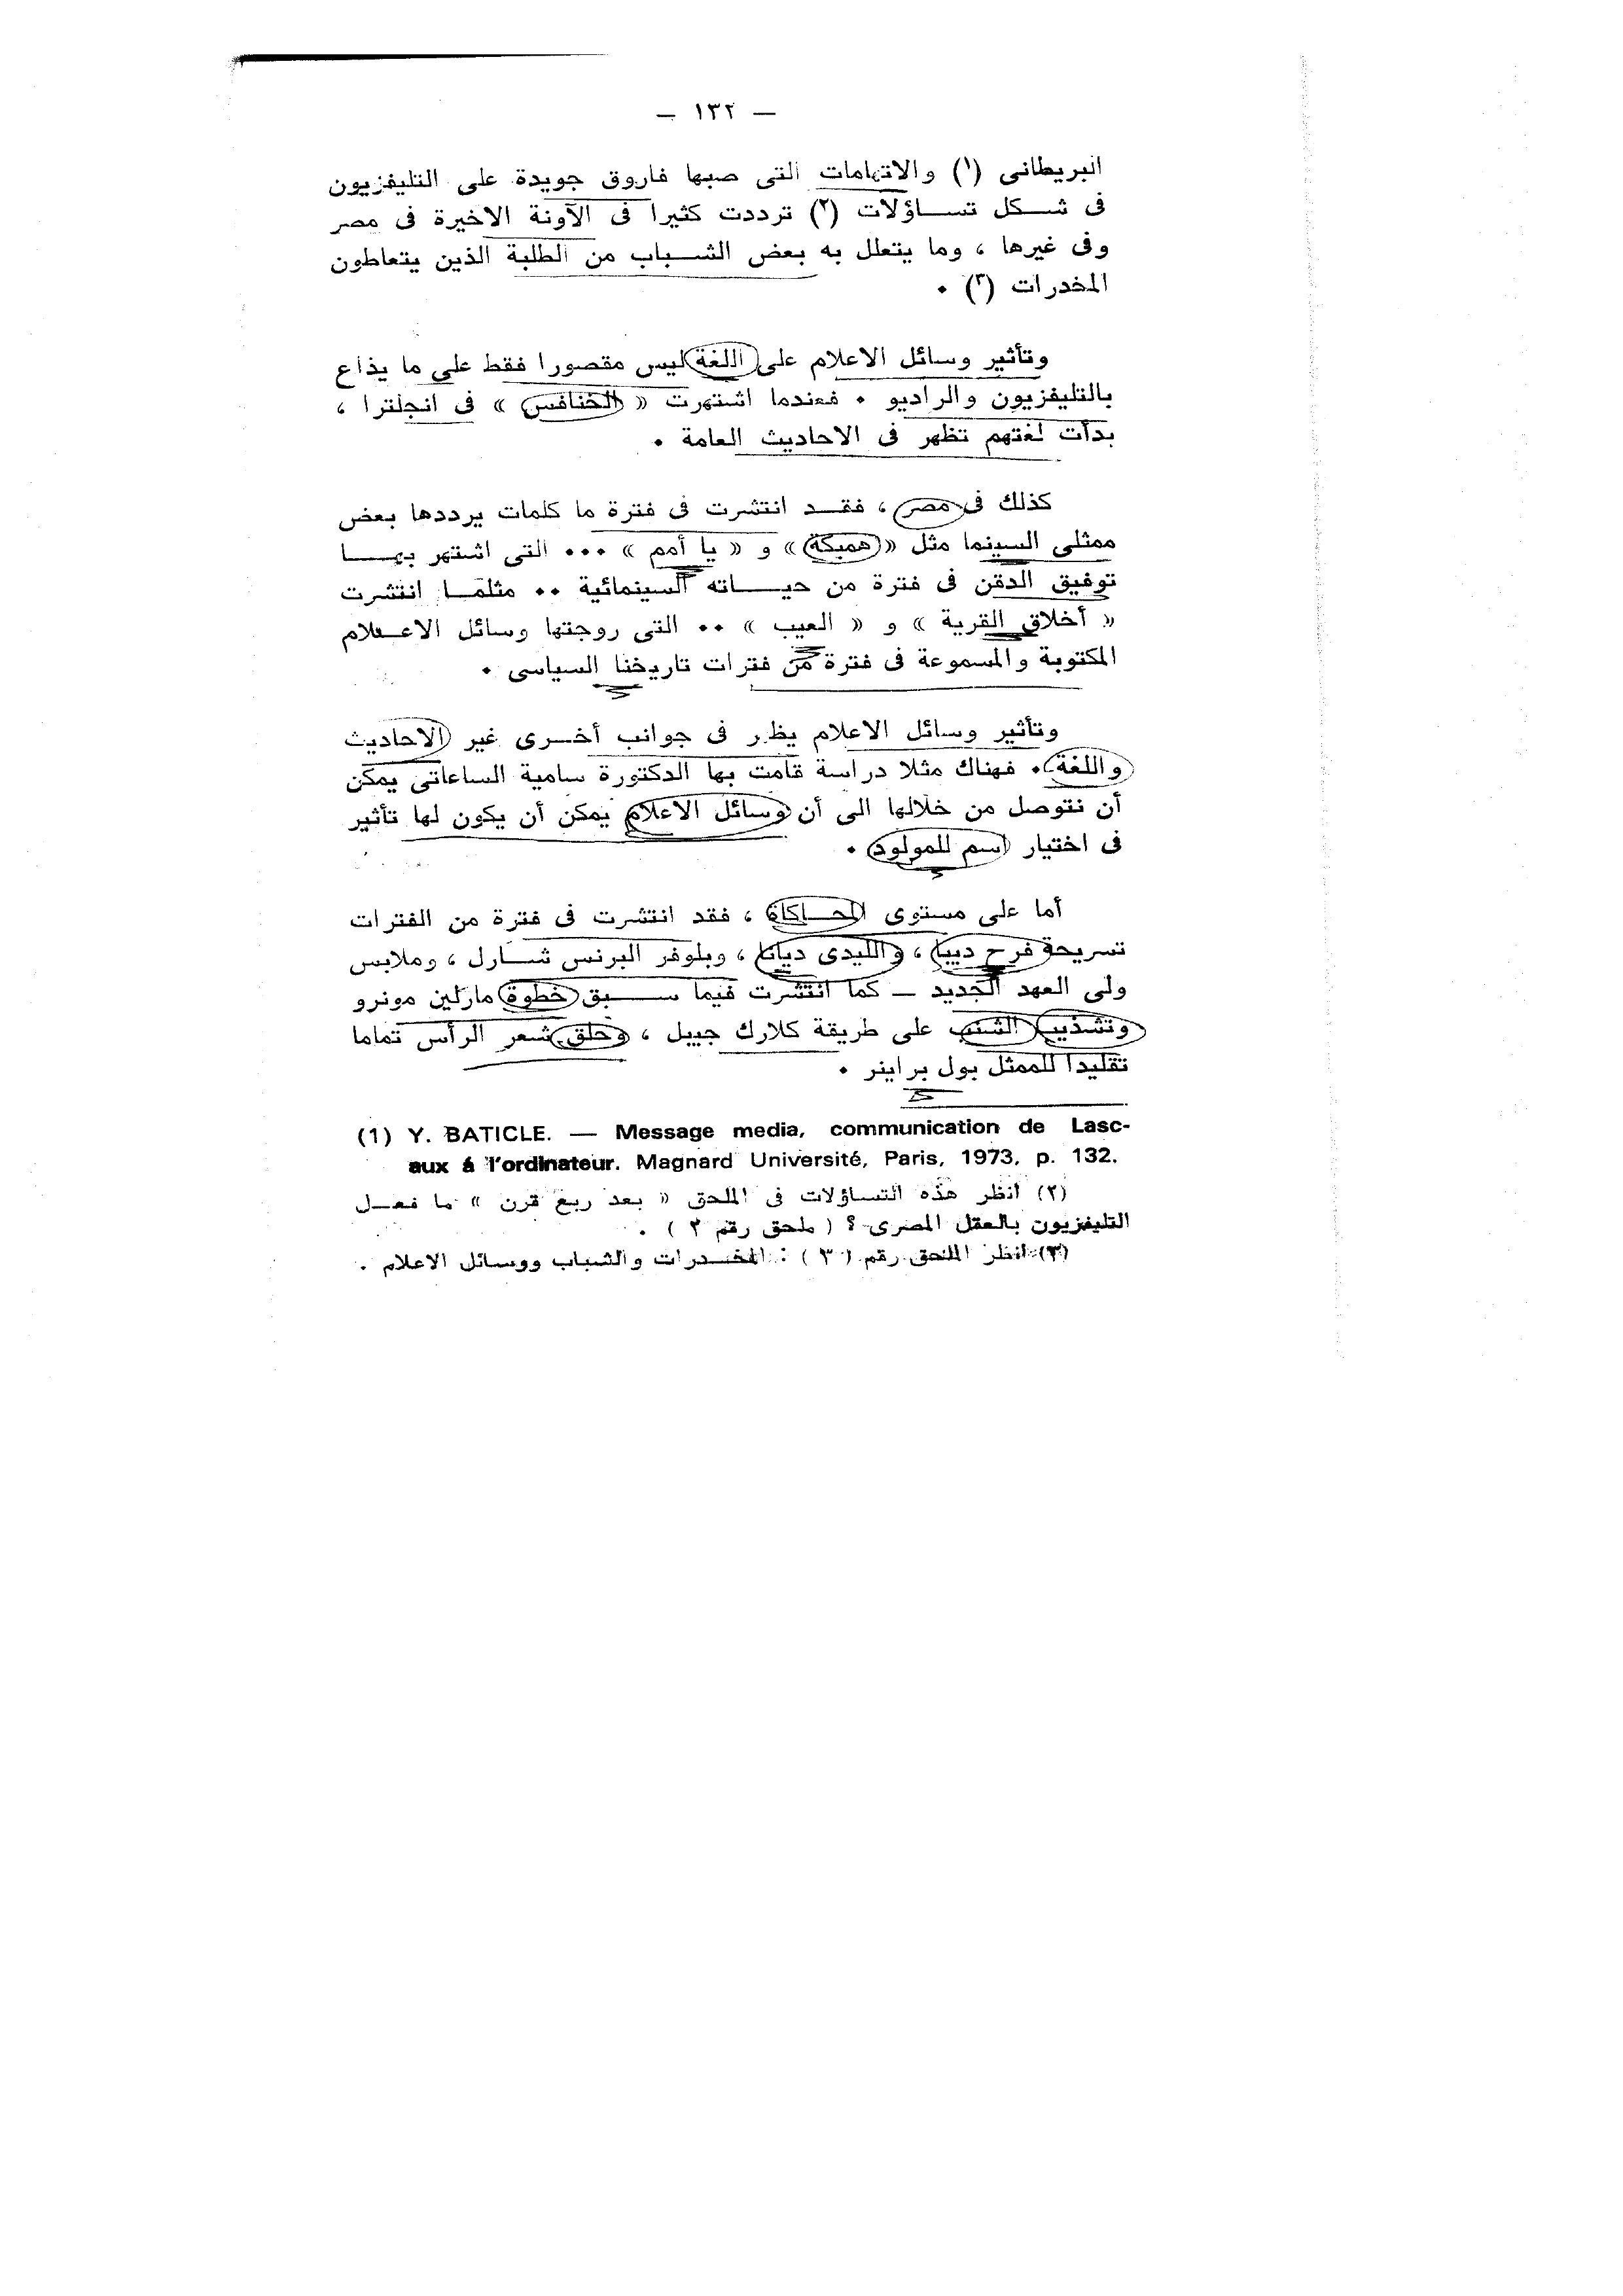 — ١٣٢ —
البريطانى (١) والاتهامات التى صبها فاروق جويدة على التليفزيون
فى شكل تساؤلات (٢) ترددت كثيرا فى الآونة الاخيرة فى مصر
وفى غيرها ، وما يتعلل به بعض الشباب من الطلبة الذين يتعاطون
المخدرات (٣) ٠
وتأثير وسائل الاعلام على اللغة ليس مقصورا فقط على ما يذاع
بالتليفزيون والراديو ٠ فعندما اشتهرت « الخنافس » فى انجلترا ،
بدأت لغتهم تظهر فى الاحاديث العامة ٠
كذلك فى مصر ، فقد انتشرت فى فترة ما كلمات يرددها بعض
ممثلى السينما مثل « همبكة » و « يا أمم » ٠٠٠ التى اشتهر بها
توفيق الدقن فى فترة من حياته السينمائية ٠٠ مثلما انتشرت
« أخلاق القرية » و « العيب » ٠٠ التى روجتها وسائل الاعلام
المكتوبة والمسموعة فى فترة من فترات تاريخنا السياسى ٠
وتأثير وسائل الاعلام يظهر فى جوانب أخرى غير الاحاديث
واللغة ٠ فهناك مثلا دراسة قامت بها الدكتورة سامية الساعاتى يمكن
أن نتوصل من خلالها الى أن وسائل الاعلام يمكن أن يكون لها تأثير
فى اختيار اسم للمولود ٠
أما على مستوى المحاكاة ، فقد انتشرت فى فترة من الفترات
تسريحة فرح ديبا ، والليدى ديانا ، وبلوفر البرنس شارل ، وملابس
ولى العهد الجديد — كما انتشرت فيما سبق خطوة مارلين مونرو
وتشذيب الشنب على طريقة كلارك جيبل ، وحلق شعر الرأس تماما
تقليدا للممثل بول براينر ٠
(1) Y. BATICLE. — Message media, communication de Lasc-
aux á l'ordinateur. Magnard Université, Paris, 1973, p. 132.
(٢) انظر هذه التساؤلات فى الملحق « بعد ربع قرن » ما فعل
التليفزيون بالعقل المصرى ؟ ( ملحق رقم ٢ ) .
(٣) انظر الملحق رقم ( ٣ ) : المخدرات والشباب ووسائل الاعلام .